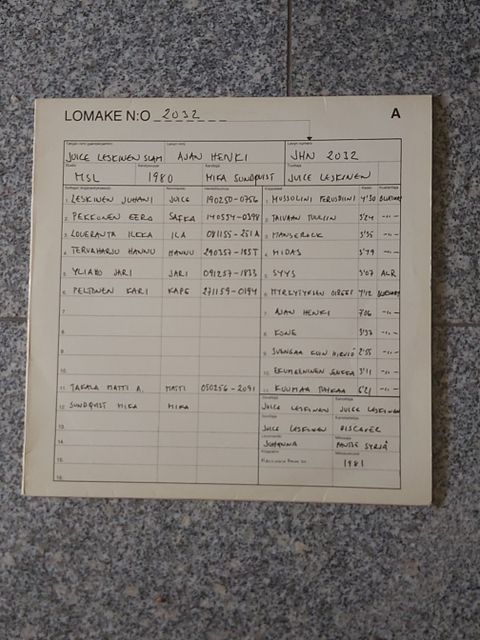 LOMAKE N:O 2032 A
JUICE LESKINEN SLAM AJAN HENKI JHN 2032
MSL 1980 MIKA SUNDQVIST JUICE LESKINEN
1. LESKINEN JUHANI JUICE 190250-0756 1. MUSSOLINI PERUSDIINI 4'30
2. PEKKONEN EERO SAFKA 2. TAIVAAN TUULIIN 3'24 -"-
3. LOUERANTA ILKKA ILA 081155-251A 3. MANSEROCK 3'35 -"-
4. TERVAHARJU HANNU HANNU 290357-185T 4. MIDAS 3'49 -"-
5. YLIAHO JARI JARI 091257-1833 5. SYYS 3'07 ALR
6. PELTONEN KARI KAPE 271159-0194 6. MYRKYTYKSEN OIREET 7'12
7. 7. AJAN HENKI 7'06 -"-
8. 8. KONE 3'37 -"-
9. 9. SVENGAA KUIN HIRVIÖ 2'55 -"-
10. 10. 3'11 -"-
11. TAKALA MATTI A. MATTI 050256-2091 11. KUUMAA TUHKAA 6'21 -"-
12. SUNDQVIST MIKA MIKA JUICE LESKINEN JUICE LESKINEN
13. JUICE LESKINEN DISCOVER
14. JOHANNA PANTSE SYRJÄ
15. 1981
16.